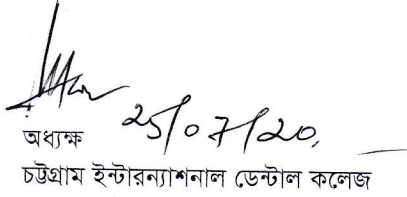 25/07/20
অধ্যক্ষ
চট্টগ্রাম ইন্টারন্যাশনাল ডেন্টাল কলেজ